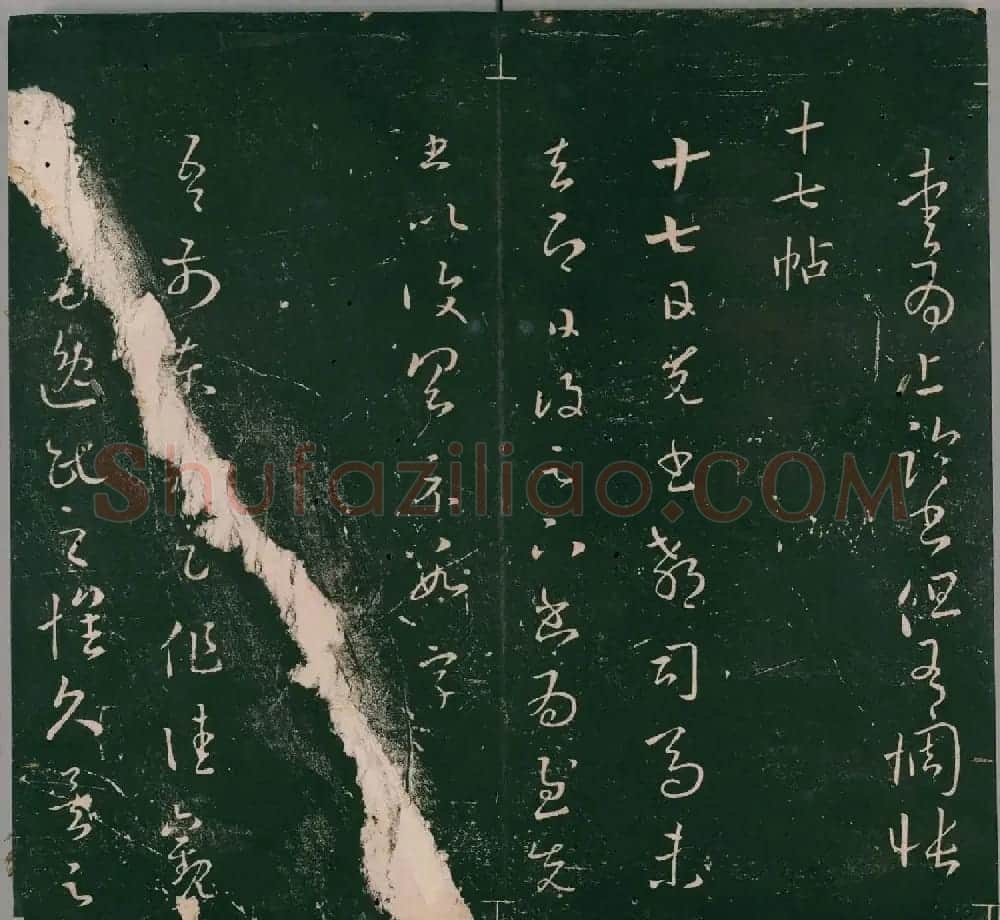 愛為上臨書但有惆悵
十七帖
十七日先書郗司馬未
去即日得足下書為慰先
書以復具示數字
吾前東粗足作佳觀
為逸民之懷久矣足
Shufaziliao.COM